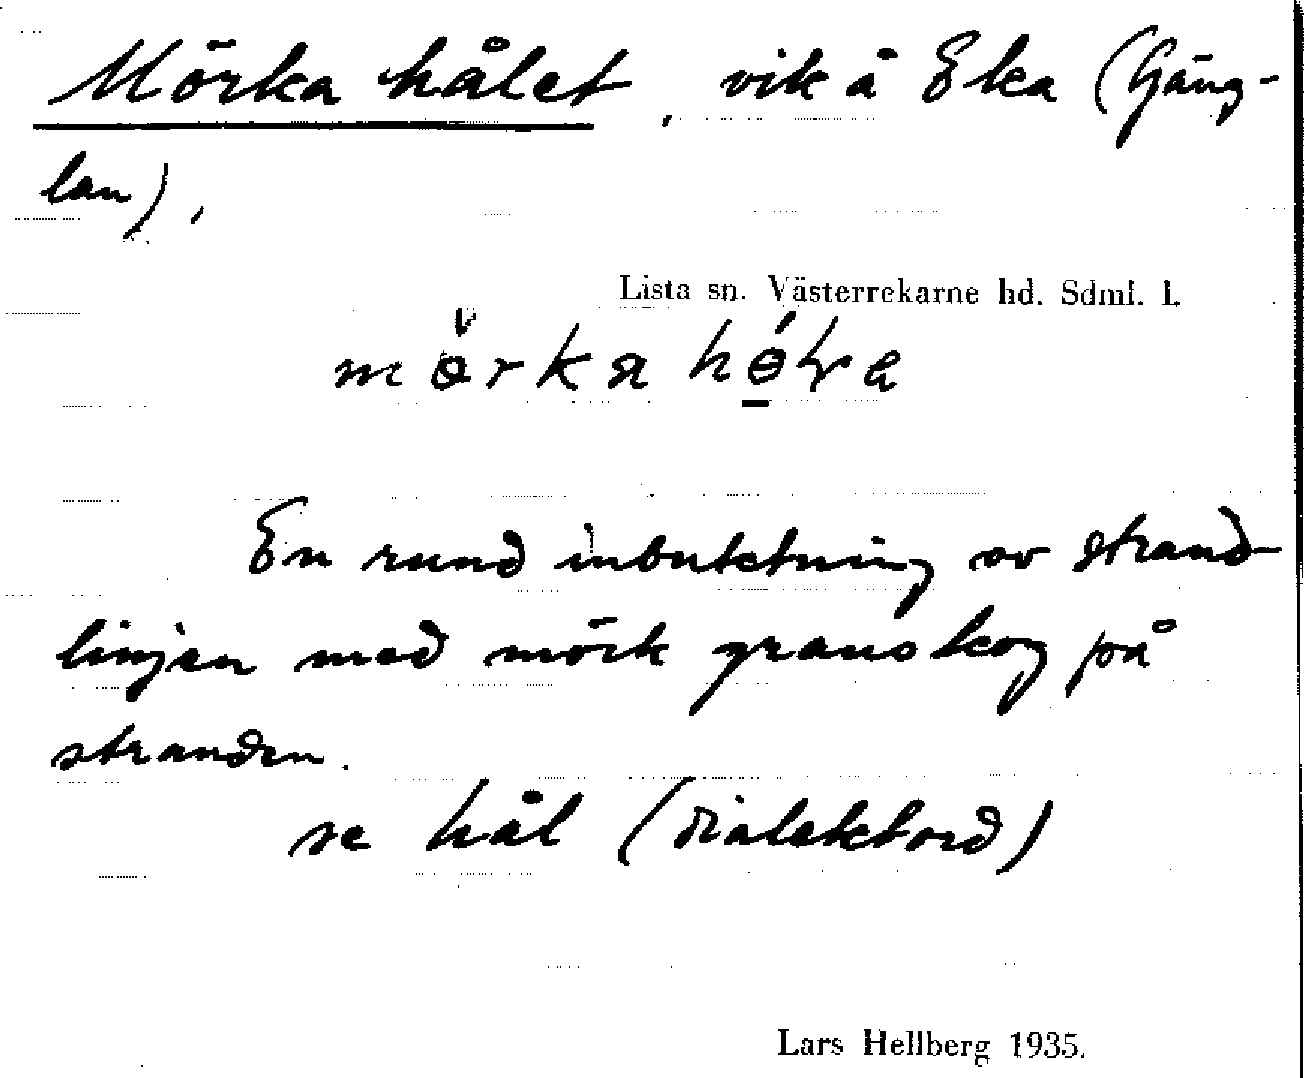 Mörka hålet, vik å Eka (Gäng-
lan),
Lista sn. Västerrekarne hd. Sdml. l.
En rund inbuktning av strand-
linjen med mörk granskog på
stranden.
se hål (dialektord)
Lars Hellberg 1935.